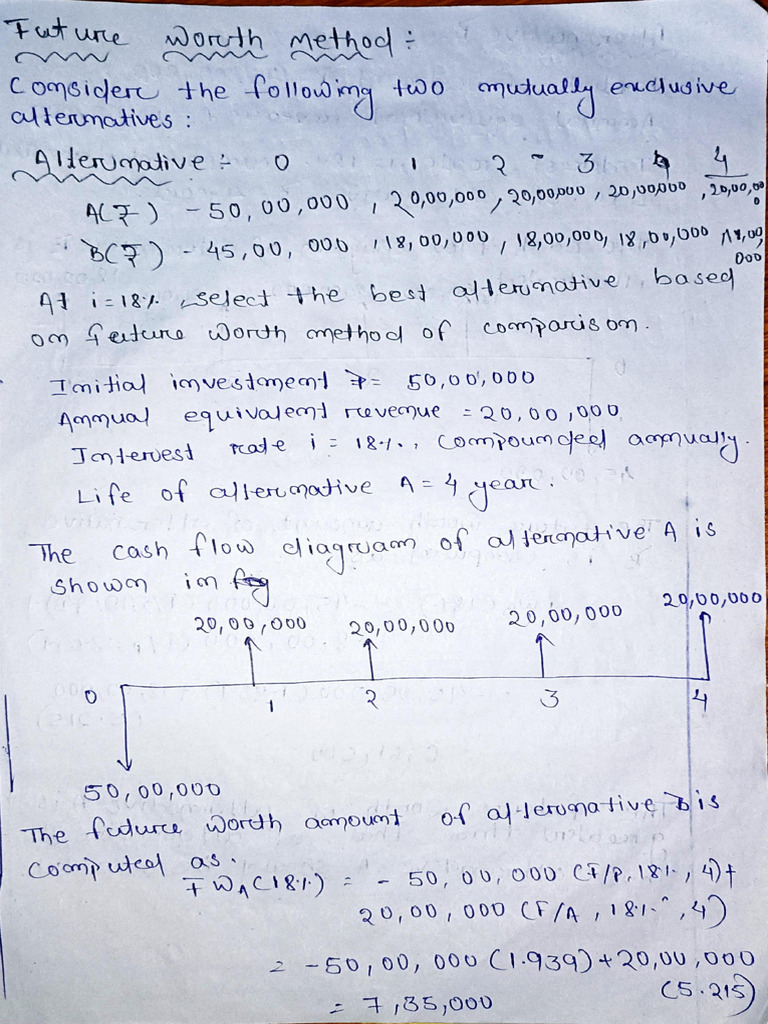 Future worth method :
Consider the following two mutually exclusive
alternatives :
Alternative : 0 1 2 3 4
A(₹) - 50,00,000 , 20,00,000 , 20,00,000 , 20,00,000 , 20,00,000
B(₹) - 45,00,000 , 18,00,000 , 18,00,000, 18,00,000 , 18,00,000
At i = 18% , select the best alternative based
on future worth method of comparison.
Initial investment P = 50,00,000
Annual equivalent revenue = 20,00,000
Interest rate i = 18%, compounded annually.
Life of alternative A = 4 year.
The cash flow diagram of alternative A is
shown in fig
20,00,000 20,00,000 20,00,000 20,00,000
0 1 2 3 4
50,00,000
The future worth amount of alternative B is
computed as.
FWA(18%) = - 50,00,000 (F/P, 18%, 4)+
20,00,000 (F/A, 18%, 4)
= -50,00,000 (1.939) + 20,00,000
(5.215)
= 7,35,000